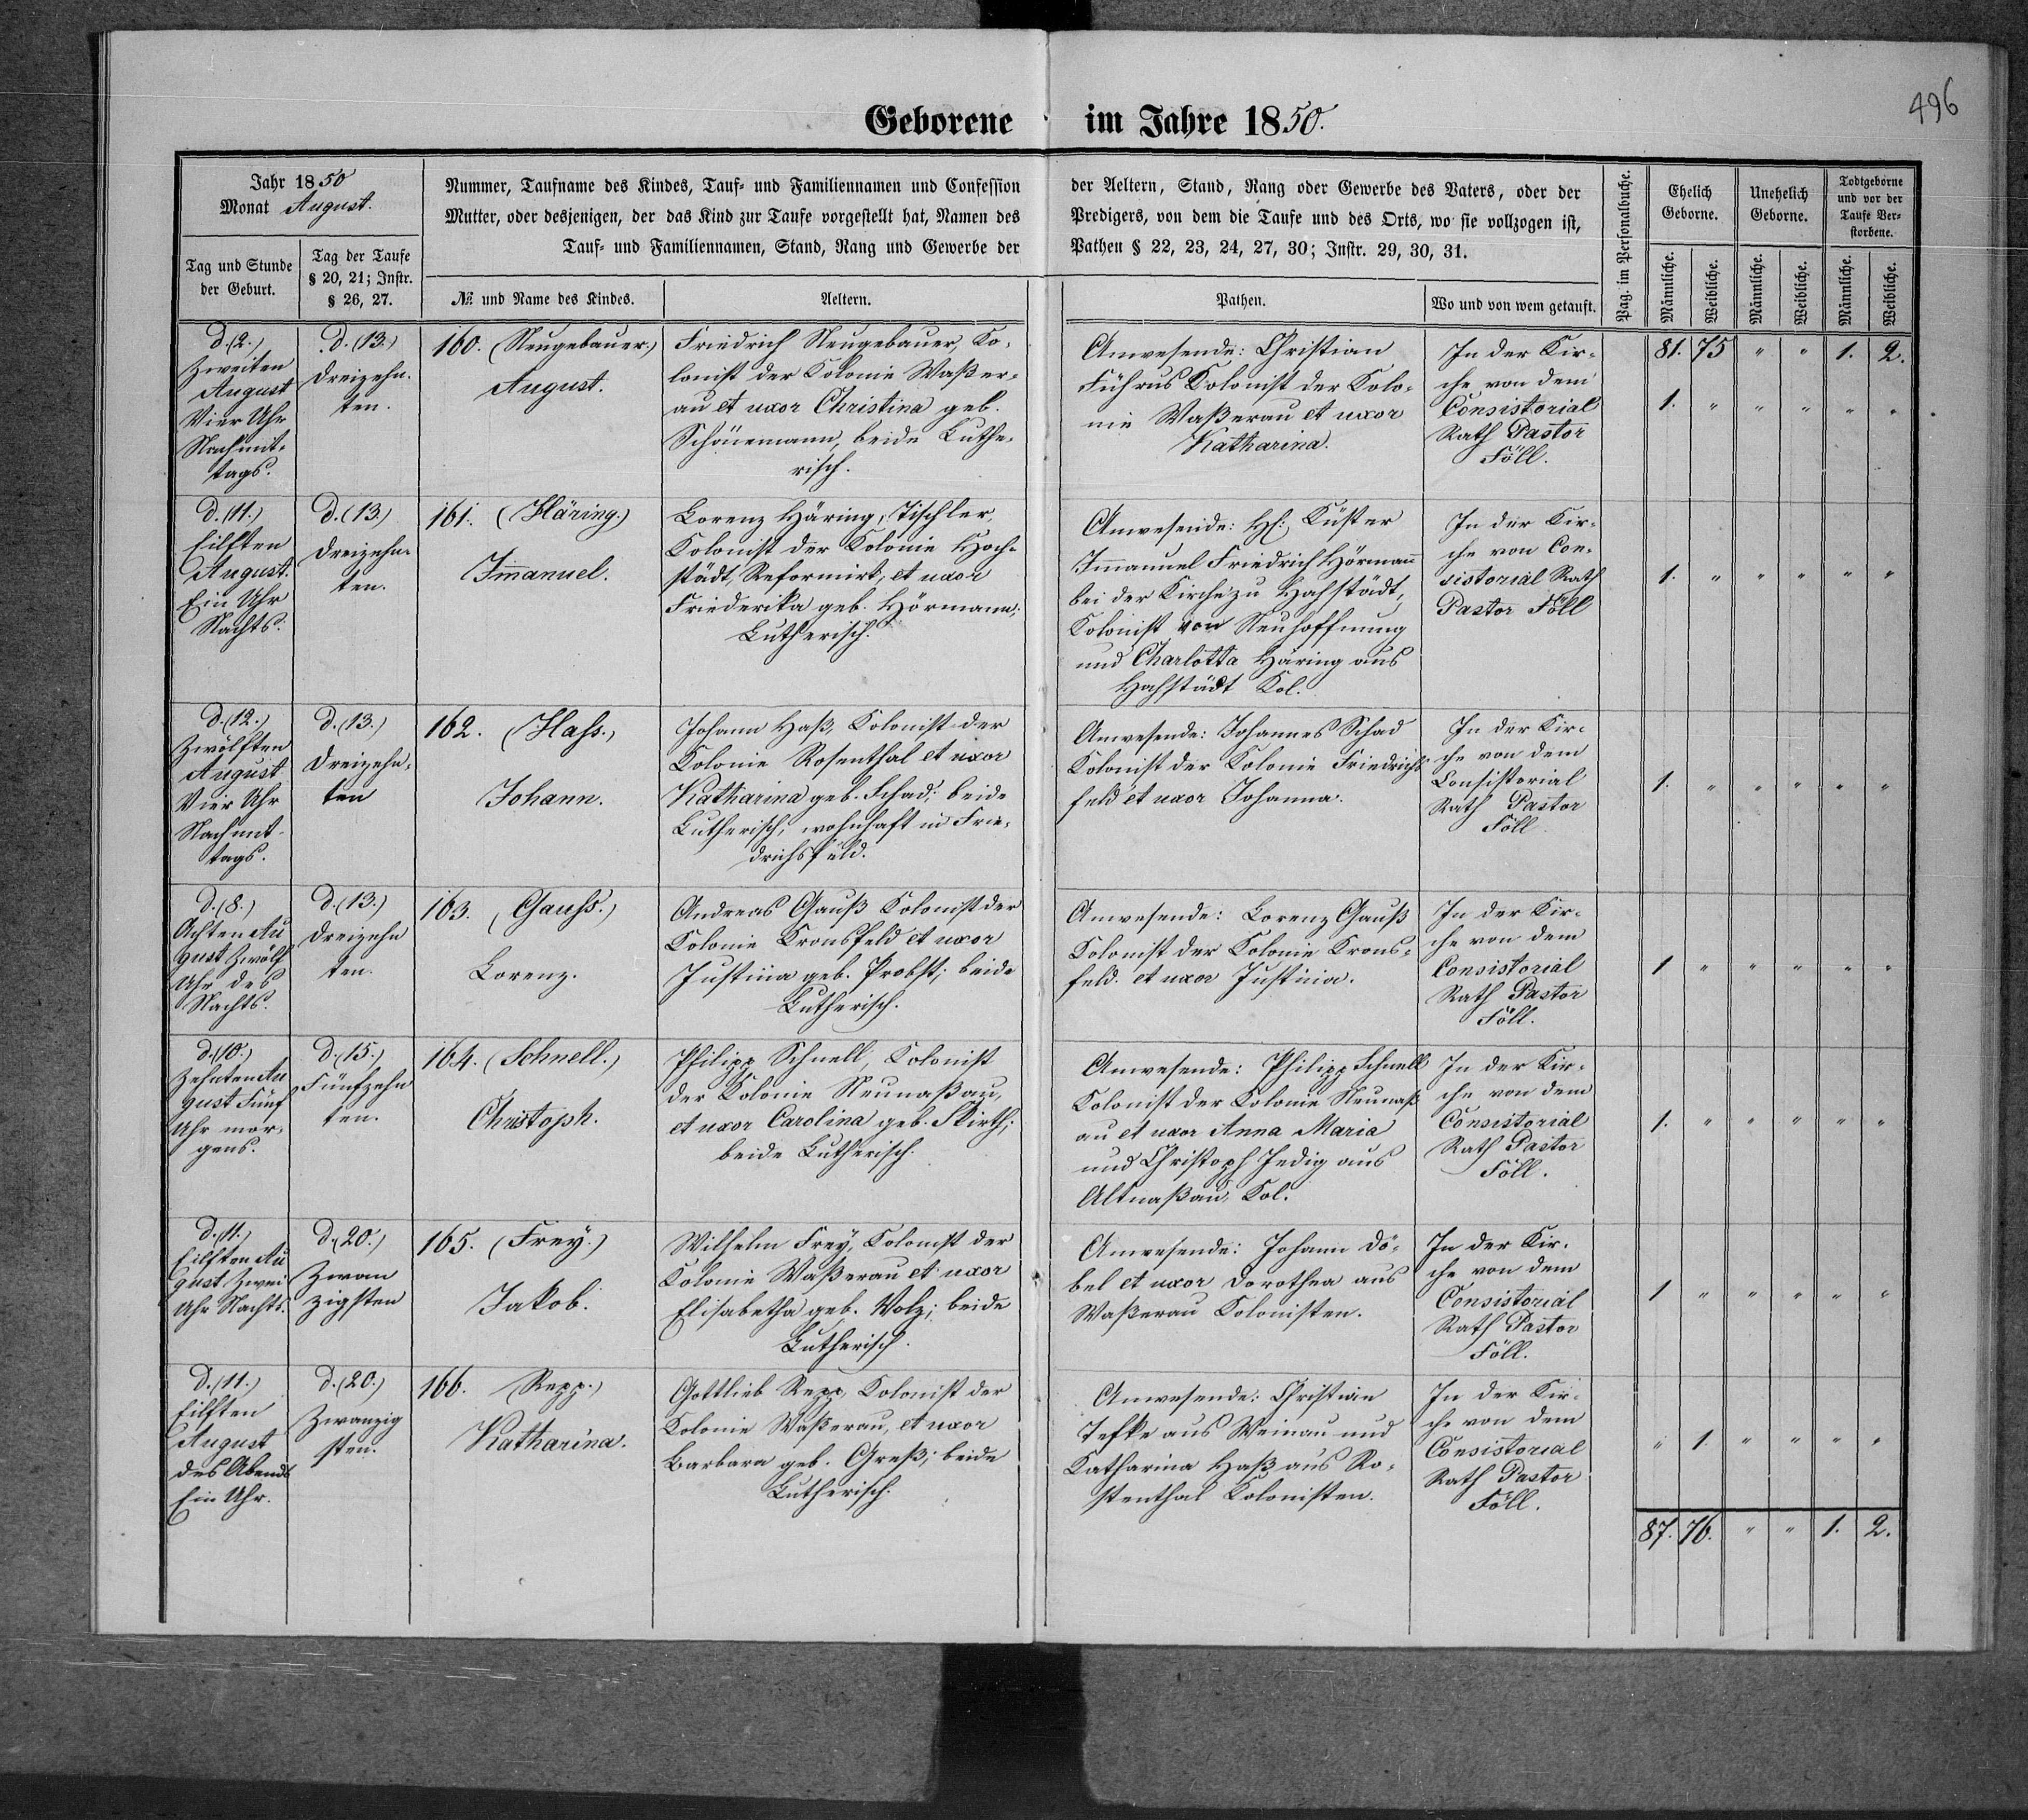 496
Geborene im Jahre 1850.
Jahr 1850
Monat August.
Tag und Stunde
der Geburt.
Tag der Taufe
§ 20, 21; Instr.
§ 26, 27.
Nummer, Taufname des Kindes, Tauf- und Familiennamen und Confession
Mutter, oder desjenigen, der das Kind zur Taufe vorgestellt hat, Namen des
Tauf- und Familiennamen, Stand, Rang und Gewerbe der
№ und Name des Kindes.
Aeltern.
der Aeltern, Stand, Rang oder Gewerbe des Vaters, oder der
Predigers, von dem die Taufe und des Orts, wo sie vollzogen ist,
Pathen § 22, 23, 24, 27, 30; Instr. 29, 30, 31.
Pathen.
Wo und von wem getauft.
Pag. im Personalbuche.
Ehelich
Geborne.
Unehelich
Geborne.
Todtgeborne
und vor der
Taufe Ver-
storbene.
Männliche.
Weibliche.
Männliche.
Weibliche.
Männliche.
Weibliche.
81. 75 " " 1. 2.
d. (2.)
Zweiten
August
Vier Uhr
Nachmit-
tags.
d. (13.)
Dreizehn-
ten.
160. (Neugebauer.)
August.
Friedrich Neugebauer, Ko-
lonist der Kolonie Waßer-
au et uxor Christina geb.
Schönemann, beide Luthe-
risch.
Anwesende: Christian
Führus Kolonist der Kolo-
nie Waßerau et uxor
Katharina.
In der Kir-
che von dem
Consistorial
Rath Pastor
Föll.
1. " " " " "
d. (11.)
Eilften
August.
Ein Uhr
Nachts.
d. (13.)
Dreizehn-
ten.
161. (Häring.)
Immanuel.
Lorenz Häring, Tischler,
Kolonist der Kolonie Hoch-
städt, Reformirt, et uxor
Friederika geb. Hörmann;
Lutherisch.
Anwesende: H: Küster
Immanuel Friedrich Hörmann
bei der Kirche zu Hochstädt,
Kolonist von Neuhoffnung
und Charlotta Häring aus
Hochstädt Kol.
In der Kir-
che von Con-
sistorial Rath
Pastor Föll
1. " " " " "
d. (12.)
Zwölften
August
Vier Uhr
Nachmit-
tags.
d. (13.)
Dreizehn-
ten
162. (Hass.)
Johann.
Johann Haß, Kolonist der
Kolonie Rosenthal et uxor
Katharina geb. Schad; beide
Lutherisch, wohnhaft in Frie-
drichsfeld.
Anwesende: Johannes Schad
Kolonist der Kolonie Friedrichs-
feld et uxor Johanna.
In der Kir-
che von dem
Consistorial
Rath Pastor
Föll.
1. " " " " "
d. (8.)
Achten Au
gust Zwölf
Uhr des
Nachts.
d. (13.)
Dreizehn
ten.
163. (Gauss.)
Lorenz.
Andreas Gauß Kolonist der
Kolonie Kronsfeld et uxor
Justina geb. Probst; beide
Lutherisch.
Anwesende: Lorenz Gauß
Kolonist der Kolonie Krons-
feld. et uxor Justina.
In der Kir-
che von dem
Consistorial
Rath Pastor
Föll.
1 " " " " "
d. (10.)
Zehnten Au
gust Fünf
Uhr mor-
gens.
d. (15.)
Fünfzehn
ten.
164. (Schnell.)
Christoph.
Philipp Schnell, Kolonist
der Kolonie Neunaßau,
et uxor Carolina geb. Skirth;
beide Lutherisch.
Anwesende: Philipp Schnell
Kolonist der Kolonie Neunaß
au et uxor Anna Maria
und Christoph Jedig aus
Altnaßau, Kol.
In der Kir-
che von dem
Consistorial
Rath Pastor
Föll.
1. " " " " "
d. (11.)
Eilften Au
gust. Zwei
Uhr Nachts.
d. (20.)
Zwan
zigsten
165. (Frey.)
Jakob.
Wilhelm Frey, Kolonist der
Kolonie Waßerau et uxor
Elisabetha geb. Volz; beide
Lutherisch.
Anwesende: Johann Dö-
bel et uxor Dorothea aus
Waßerau Kolonisten.
In der Kir-
che von dem
Consistorial
Rath Pastor
Föll.
1 " " " " "
d. (11.)
Eilften
August
des Abends
Ein Uhr.
d. (20.)
Zwanzig
sten.
166. (Repp.)
Katharina.
Gottlieb Repp, Kolonist der
Kolonie Waßerau, et uxor
Barbara geb. Greß; beide
Lutherisch.
Anwesende: Christian
Tefke aus Weinau und
Katharina Haß aus Ro-
senthal Kolonisten.
In der Kir-
che von dem
Consistorial
Rath Pastor
Föll.
" 1. " " " "
87. 76. " " 1. 2.